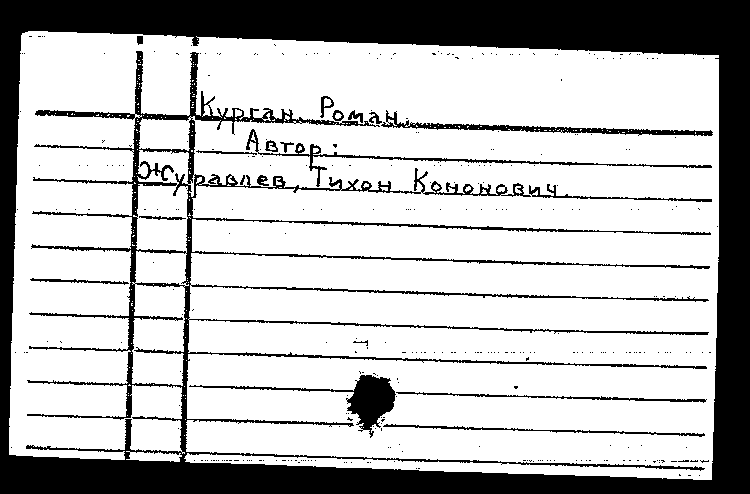 Курган. Роман.
Автор:
Журавлев, Тихон Кононович.